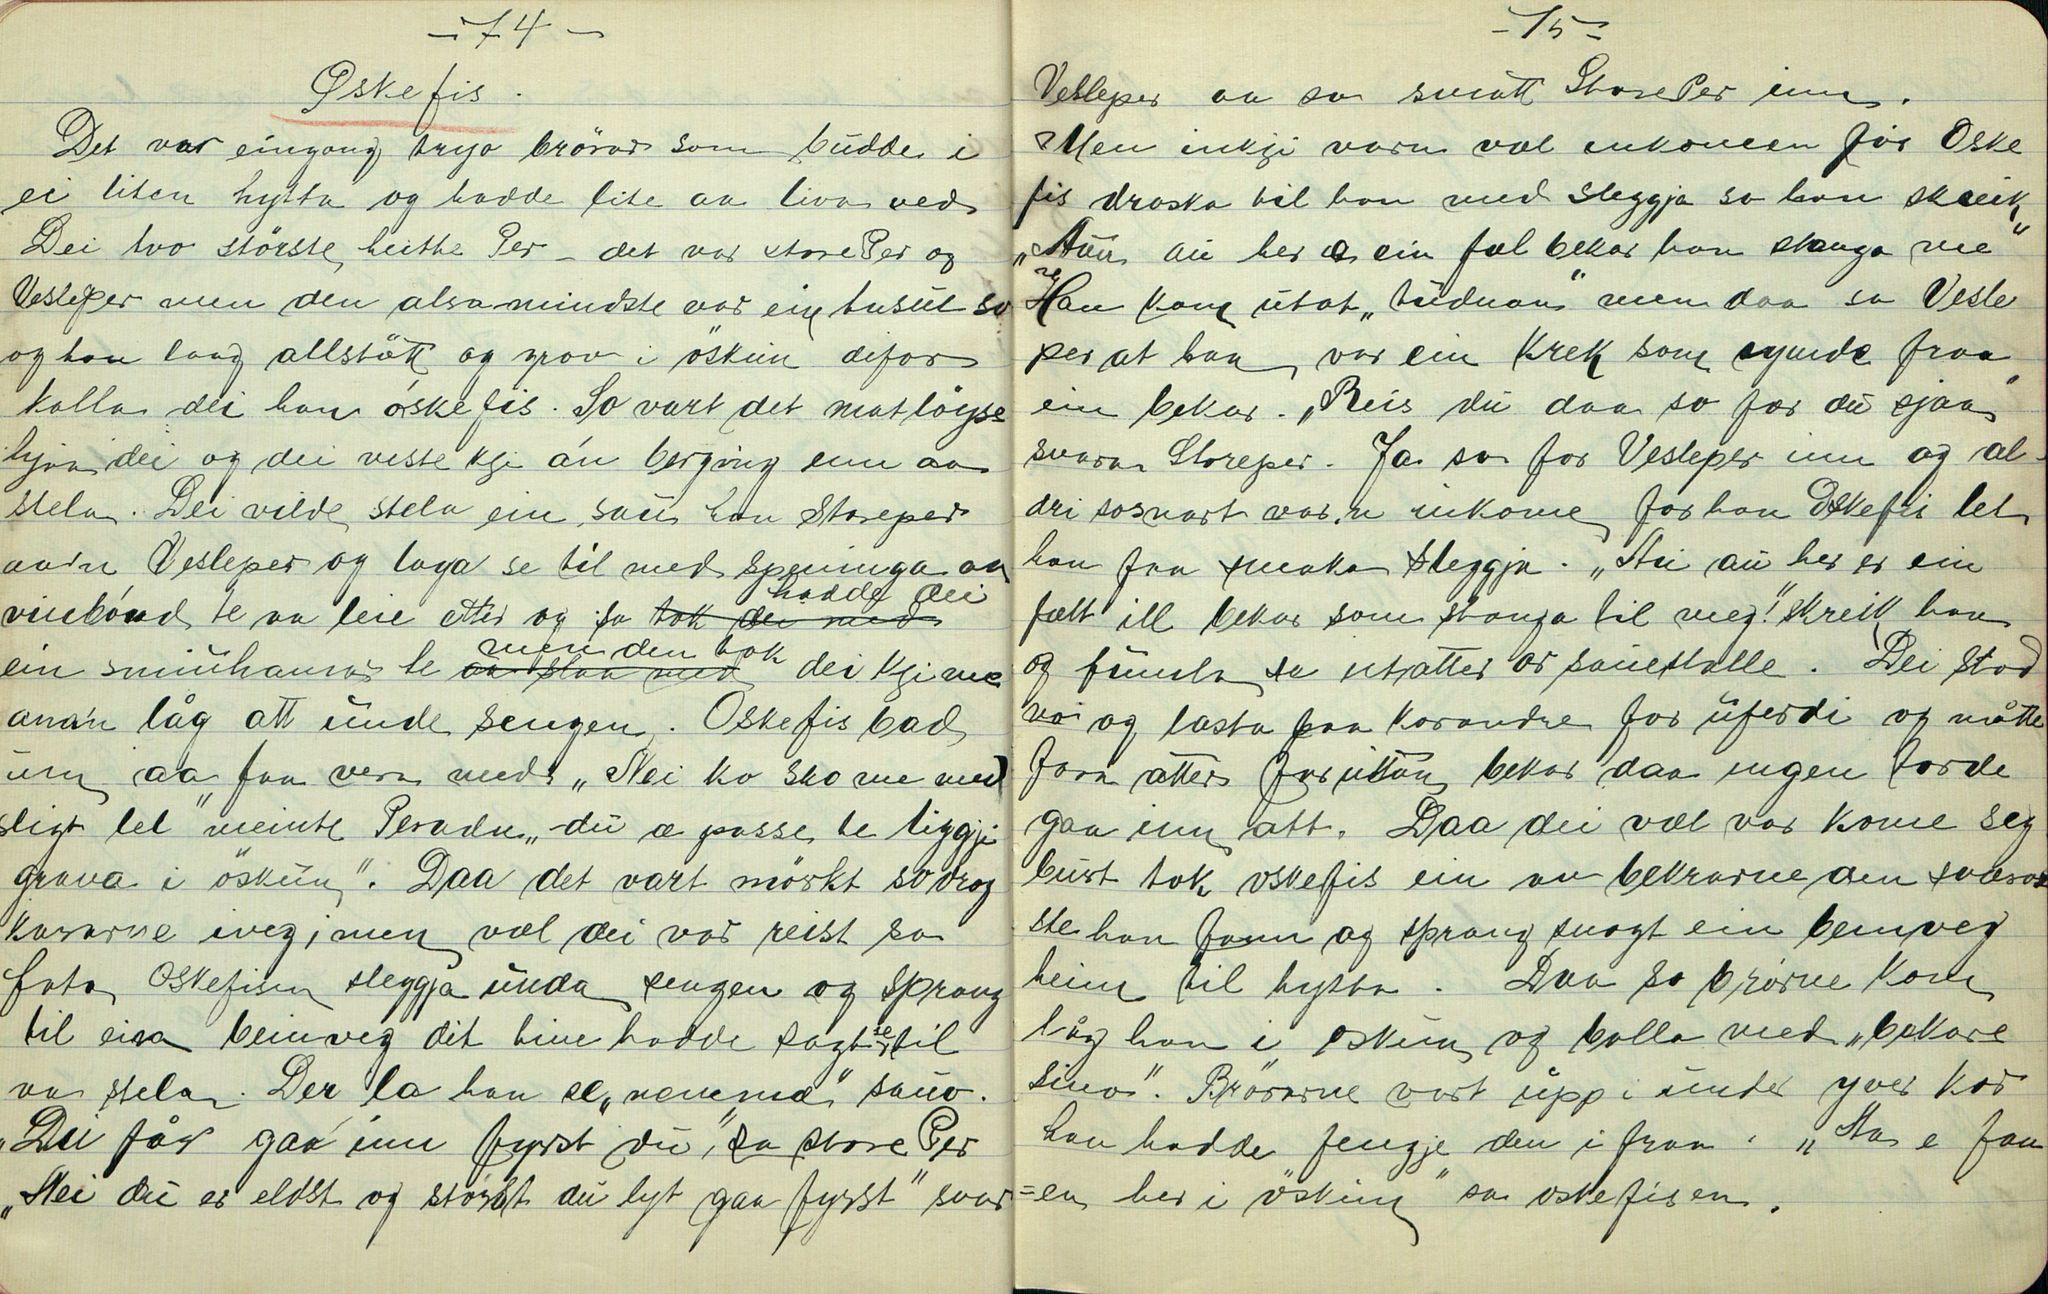 - 74 -
Øskefis.
Det var eingong trjo brörar som budde i
ei liten hytta og hadde lite aa liva ved
Dei tvo störste heitte Per - det var storePer og
VeslePer men den alra mindste var ein tusul so
og han laag allstött og grov i öskun difor
kalla dei han öskefis. So vart det matlöyse
hjaa dei og dei visste kje án berging enn aa
stela. Dei vilde stela ein sau han Storeper
aa'n Vesleper og laga se til med speninga aa
viebónd te aa leie etter og so tok dei med hadde dei
ein smiuhamar te aa slaa med men den tok dei kje me
ana'n låg att unde sengen. Oskefis bad
um aa faa vera med. „Nei ko sko me med
sligt let" meinte Peradn „du æ passe te liggje
grava i öskun". Daa det vart mörkt so drog
kararne iveg, men væl dei var reist so
fata Oskefisen sleggja unda sengen og sprang
til ein beinveg dit hine hadde sagt se til
aa stela. Der la han se „nemma" sauo.
„Du får gaa inn fyrst du", sa storePer
„Nei du er eldst og störst du lyt gaa fyrst" svar
- 75 -
Vesleper aa so smatt StorePer inn.
Men inkji varn væl inkomen för Oske
fis draska til han med sleggja so han skreik
„Au au her æ ein fæl bekar han stanga me"
Han kom utat „tudnan" men daa sa Vesle
per at han var ein krek som rymde fraa
ein bekar. „Reis du daa so fær du sjaa"
svara Storeper. Ja so for Vesleper inn og al-
dri sosnart var'n inkome for han Oskefis let
han faa smaka sleggja. „Au au her er ein
fælt ill bekar som stanga til meg!" skreik han
og fumla se utatter or sauestalle. Dei stod
no og lasta paa korandre for uferdi og måtte
fara atter forutan bekar daa ingen torde
gaa inn att. Daa dei væl var kome seg
burt tok oskefis ein av bekrarne den sværa
ste han fann og sprang snogt ein beinveg
heim til hytta. Daa so brørne kom
låg han i oskun og balla med „bekare
sino". Brörarne vart upp i under yver kor
han hadde fengje den ifraa. „Aa e faa
=en her i öskun" sa oskefisen.